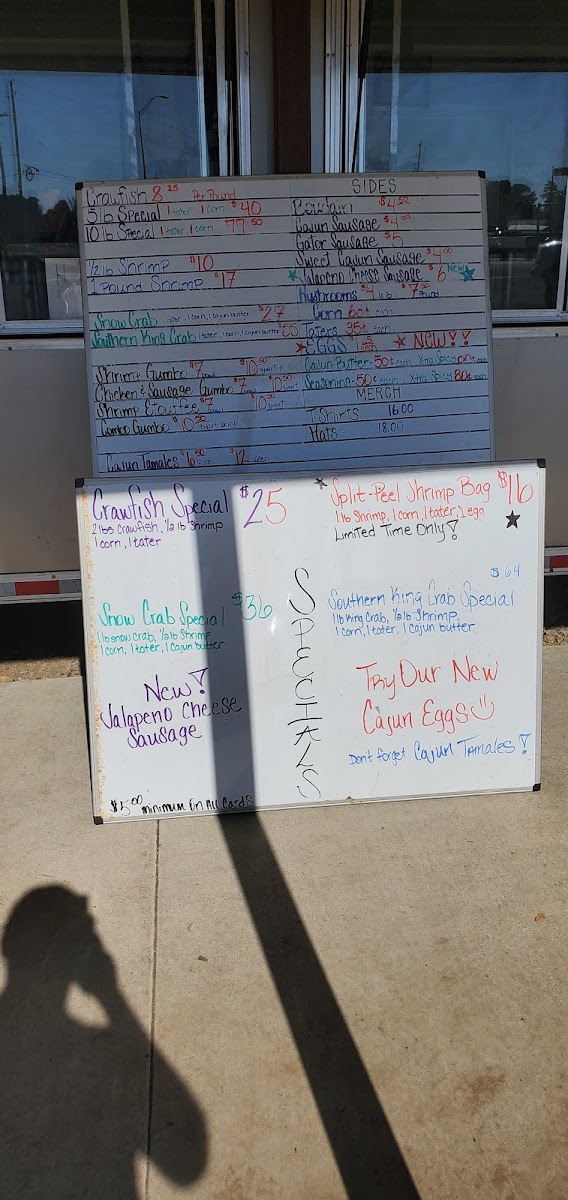 Crawfish 8.25 Per Pound
5 lb Special 1 tater 1 corn $40
10 lb Special 1 tater 1 corn 77.50
1/2 lb Shrimp $10
1 Pound Shrimp $17
Snow Crab 1 tater, 1 corn, 1 cajun butter $27
Southern King Crab 1 tater, 1 corn, 1 cajun butter $55
Shrimp Gumbo $7 $10.50 quart
Chicken & Sausage Gumbo $7 $10.50 quart
Shrimp Etouffee $7 $10.50 quart
Combo Gumbo $10.50 quart only
Cajun Tamales $6 $12
SIDES
Boudain $4.50
Cajun Sausage $4.00
Gator Sausage $5
Sweet Cajun Sausage $4.00
Jalapeno Cheese Sausage $6 New
Mushrooms $4 1/2 lb $7 Pound
Corn 60¢ each
Taters 35¢ each
EGGS NEW!!
Cajun Butter - 50¢ each Xtra Spicy each
Seasoning - 50¢ each Xtra Spicy 80¢ each
MERCH
T-Shirts 16.00
Hats 18.00
Crawfish Special $25
2 lbs crawfish, 1/2 lb Shrimp
1 corn, 1 tater
Snow Crab Special $36
1 lb snow crab, 1/2 lb Shrimp
1 corn, 1 tater, 1 cajun butter
New!
Jalapeno Cheese
Sausage
$5.00 minimum on All Cards
SPECIALS
Split-Peel Shrimp Bag $16
1 lb Shrimp, 1 corn, 1 tater, 1 egg
Limited Time Only!
$64
Southern King Crab Special
1 lb King Crab, 1/2 lb Shrimp
1 corn, 1 tater, 1 cajun butter
Try Our New
Cajun Eggs
Don't forget Cajun Tamales!